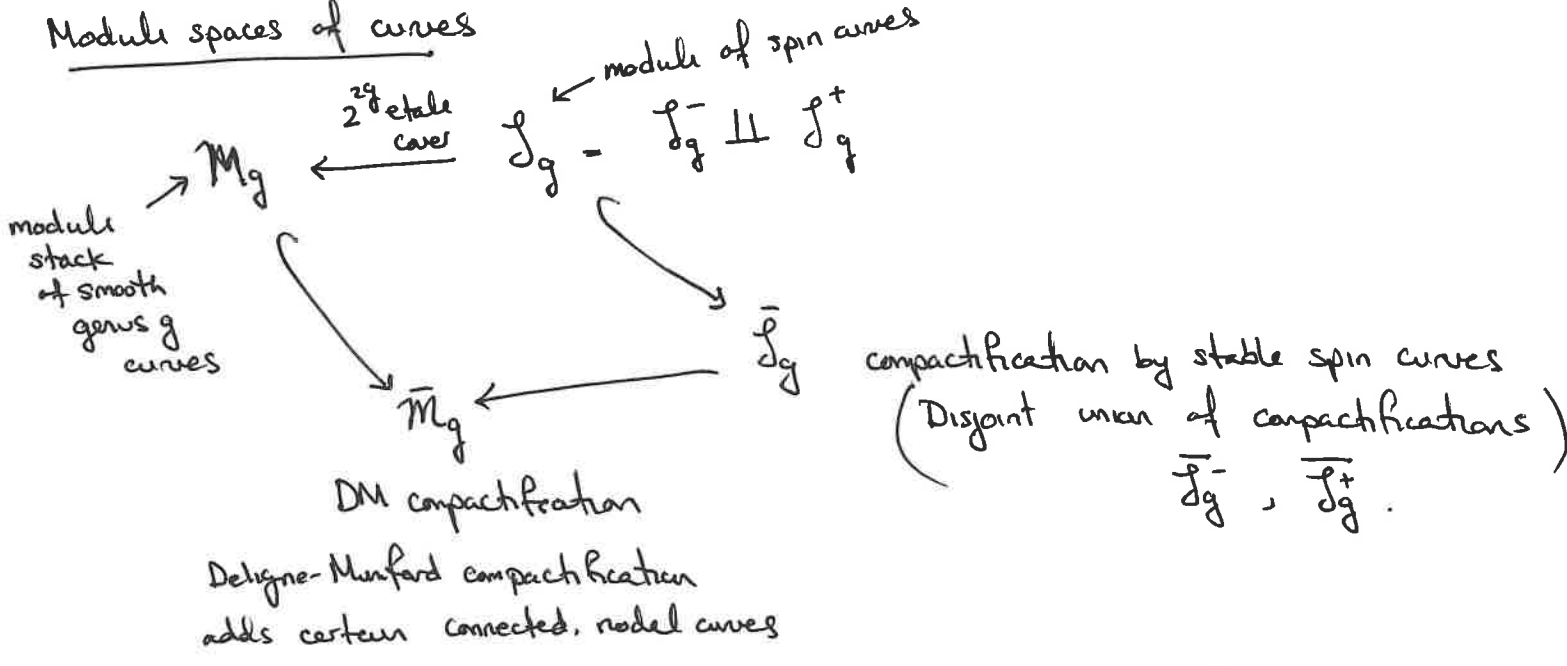 Moduli spaces of curves
moduli of spin curves
2^{2g} etale
cover
M_g
S_g = S_g^- ⊔ S_g^+
moduli
stack
of smooth
genus g
curves
\bar{S}_g
compactification by stable spin curves
(Disjoint union of compactifications)
\bar{S}_g^-, \bar{S}_g^+.
\bar{M}_g
DM compactification
Deligne-Mumford compactification
adds certain connected, nodal curves